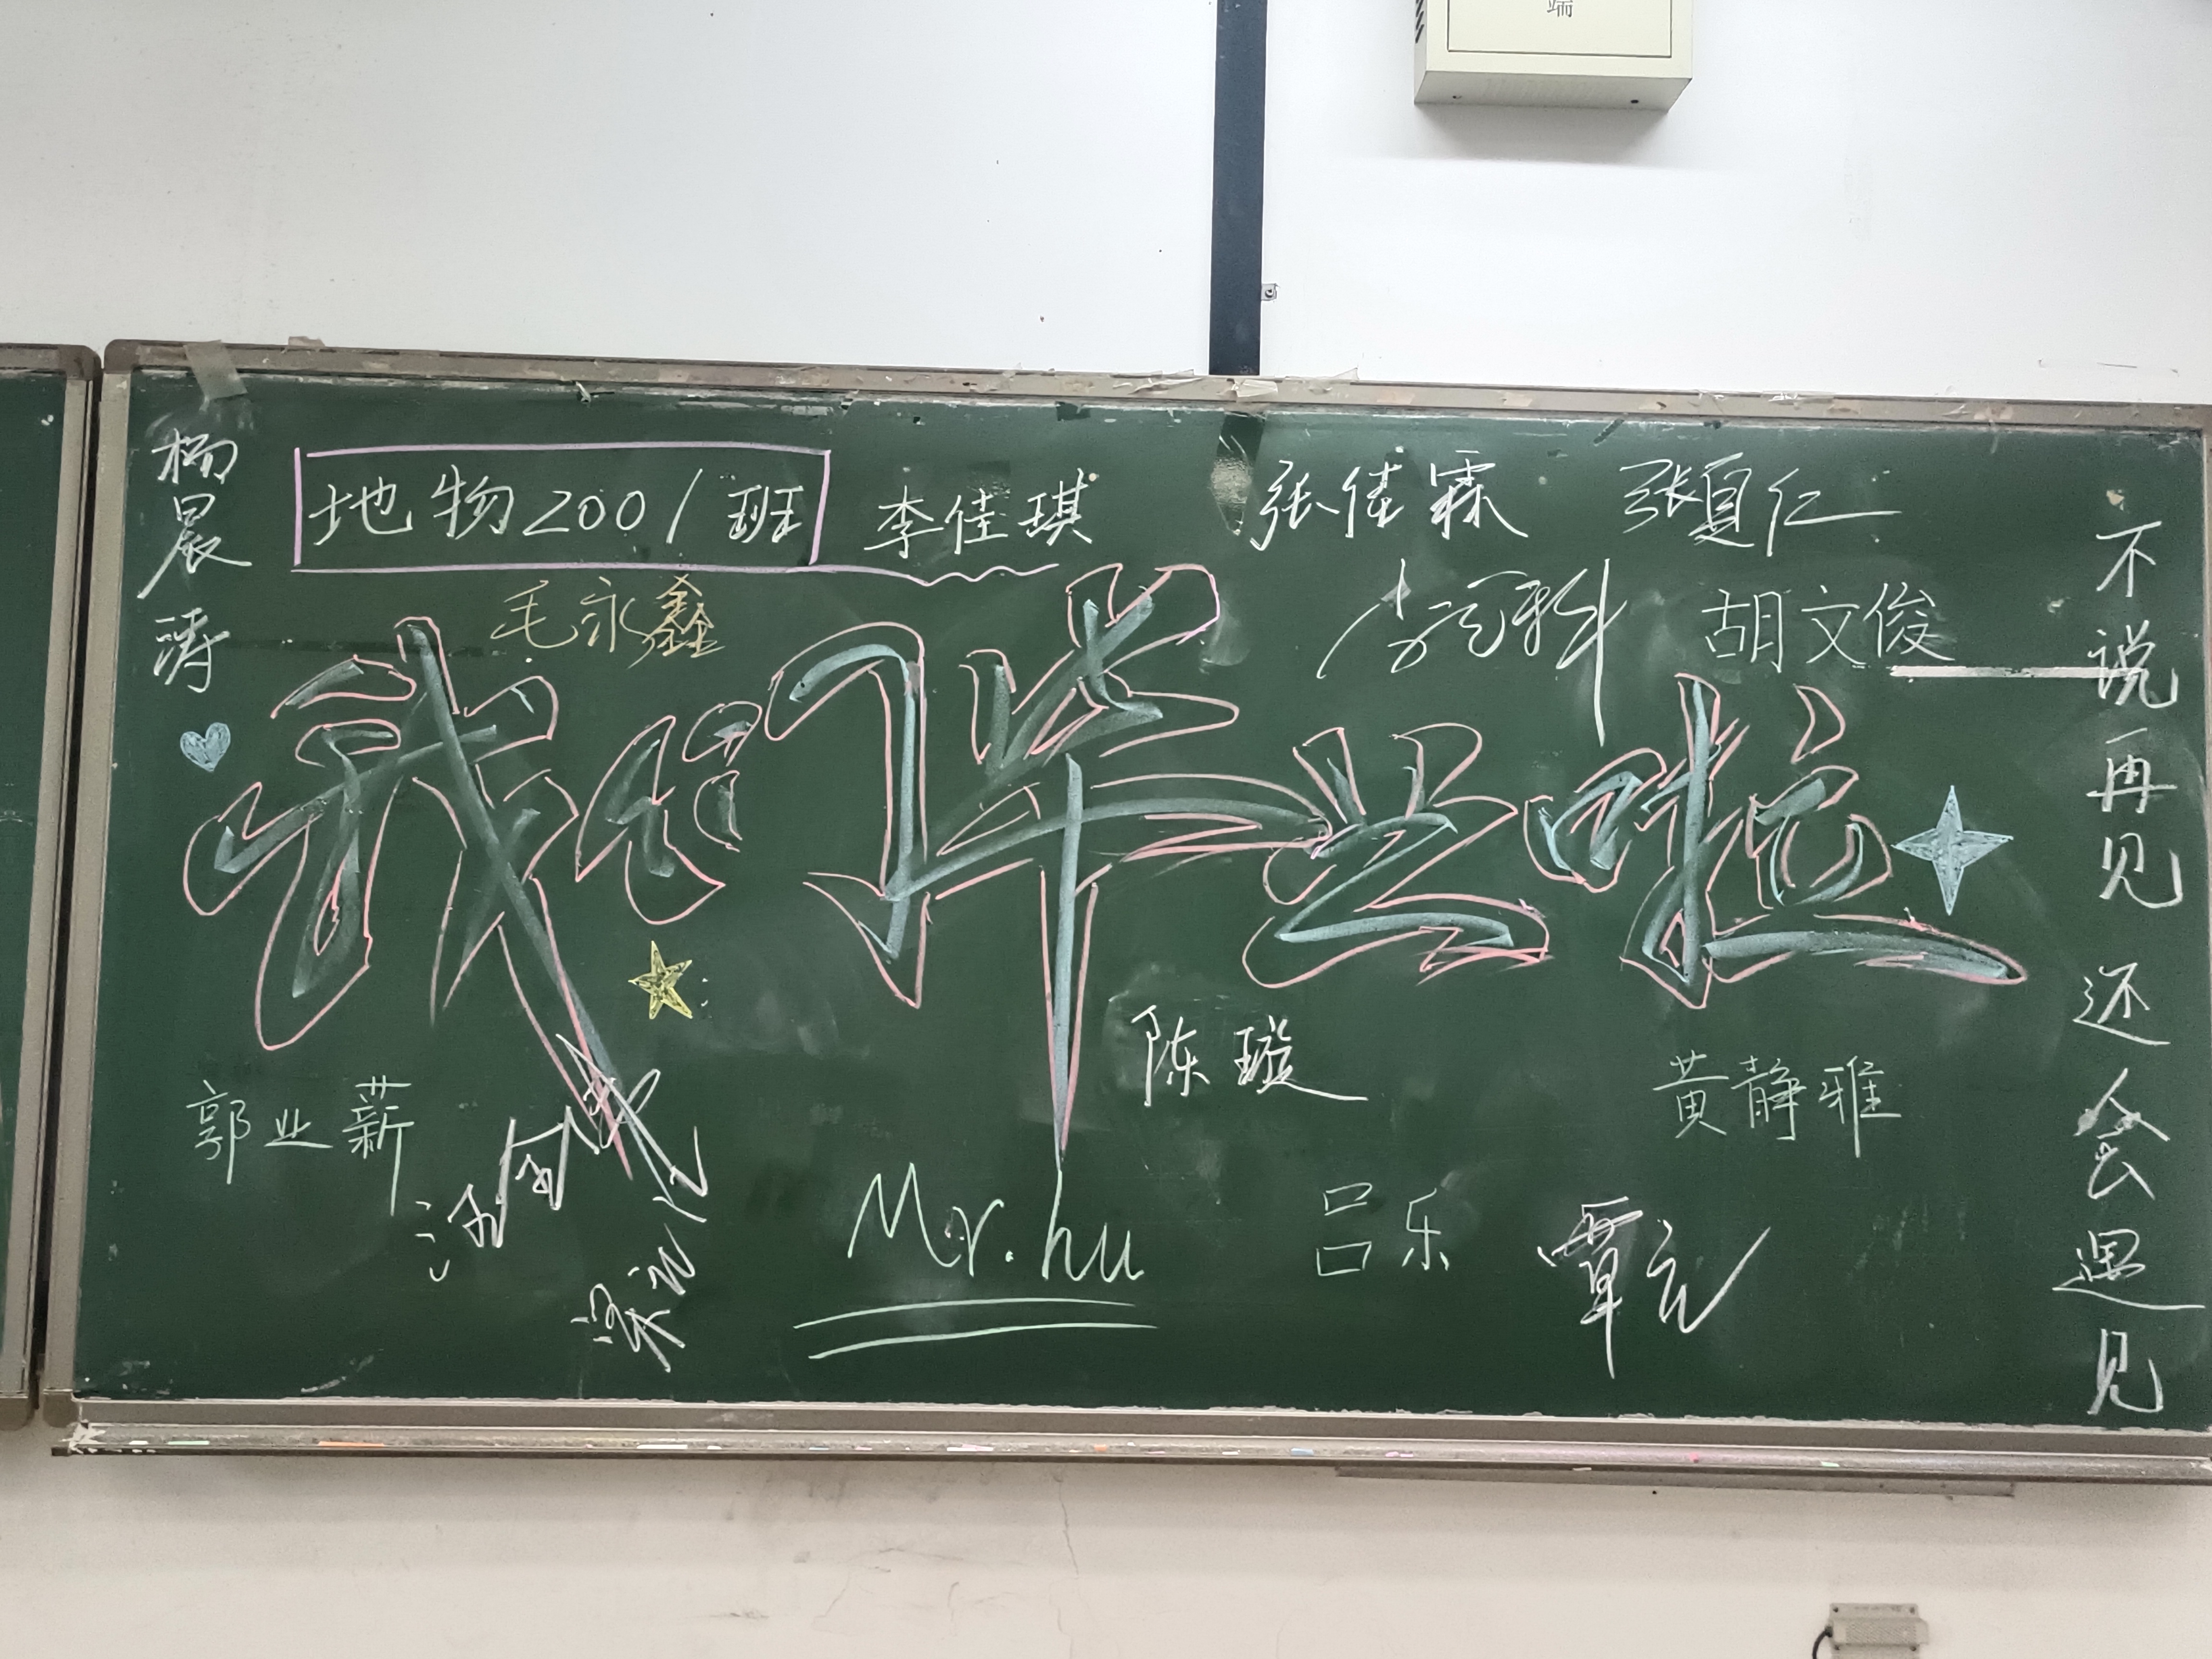 端
杨晨涛
地物2001班
李佳琪
张佳霖
张夏仁
毛永鑫
胡文俊
我们毕业啦
不说再见 还会遇见
陈璇
郭业薪
黄静雅
Mr.hu
吕乐
覃元